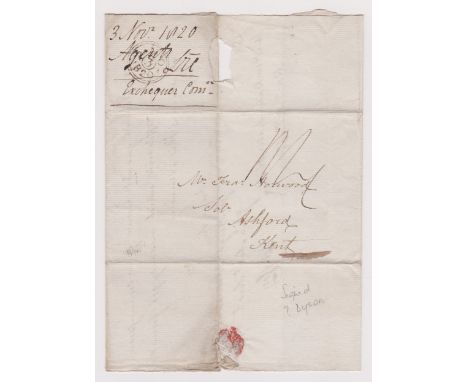 3 Novr. 1820
Agents
Exchequer Comn.
Mr.
Norwood
Solr.
Ashford
Kent
Signed
? Dyson